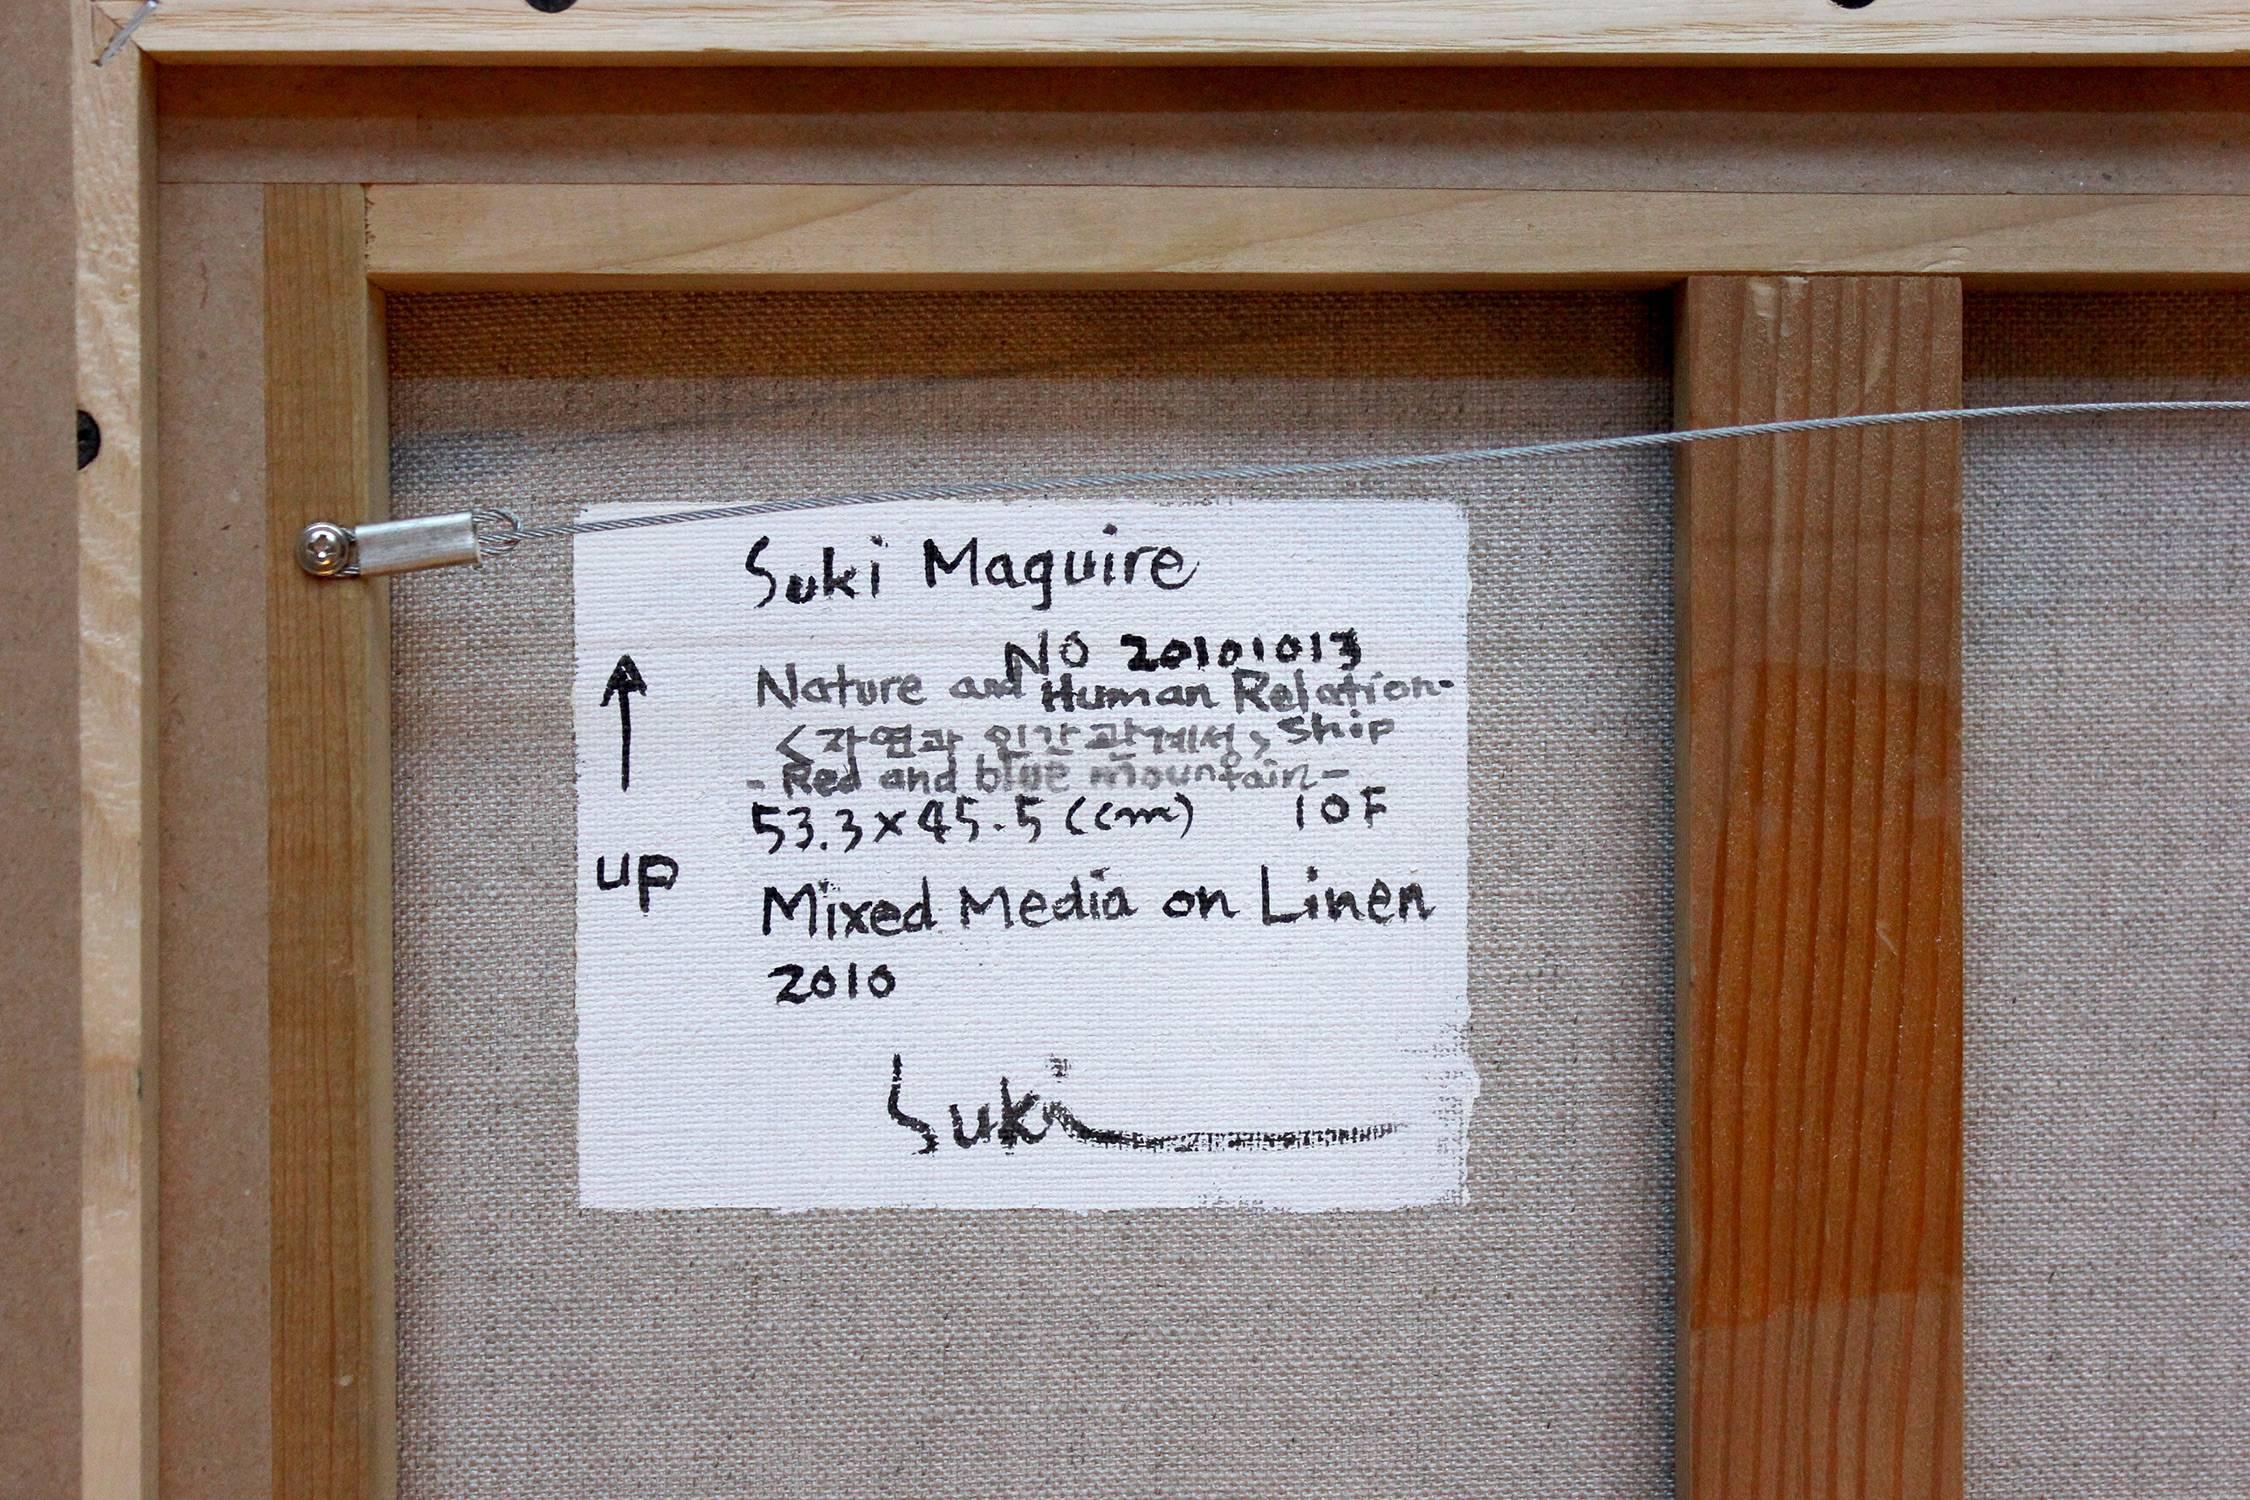 Suki Maguire
NO 20101013
Nature and Human Relation-
<자연과 인간 관계에서> Ship
- Red and blue mountain -
53.3 x 45.5 (cm) 10F
UP
Mixed Media on Linen
2010
Suki